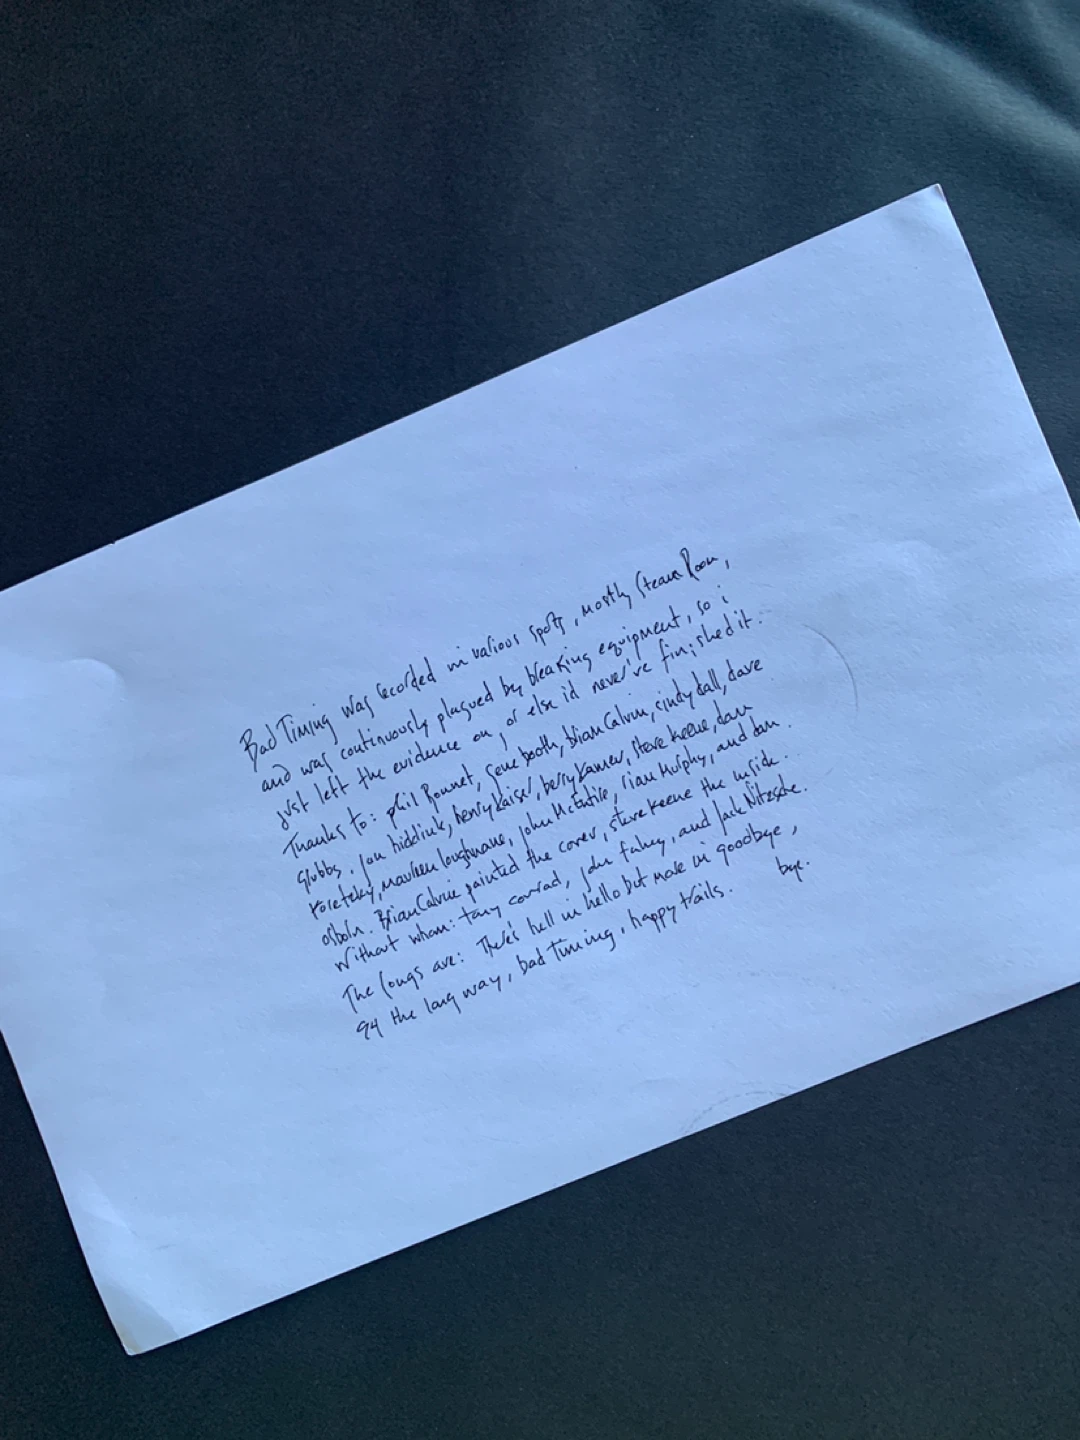 Bad Timing was recorded in various spots, mostly Steam Room,
and was continuously plagued by breaking equipment, so i
just left the evidence on, or else i'd never've finished it.
Thanks to: phil Bonnet, gene booth, brian Calvin, cindy dall, dave
grubbs, jon hiddink, henry Kaiser, berry Kamer, steve keene, dan
koretzky, maureen loughnane, john McEntire, rian Murphy, and dan
osborn. Brian Calvin painted the cover, steve keene the inside.
Without whom: tony conrad, john fahey, and Jack Nitzsche.
The Songs are: There's hell in hello but more in goodbye,
94 the long way, bad timing, happy trails.
bye.